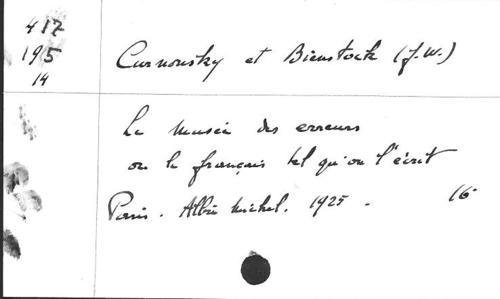 417
195
14
Curnonsky et Bienstock (J.W.)
Le musée des erreurs
ou le français tel qu'on l'écrit
Paris. Albin Michel. 1925. 16°